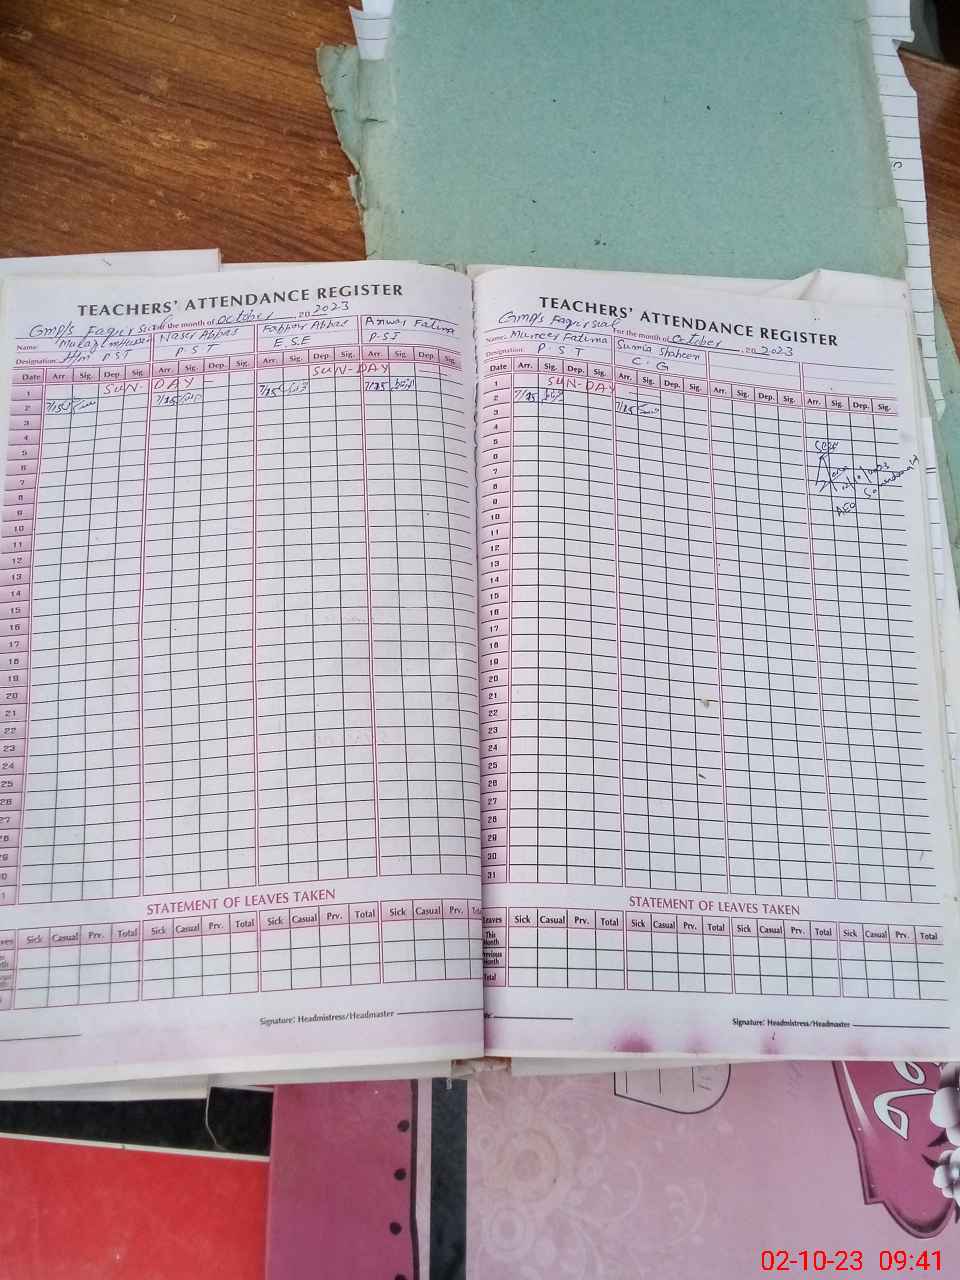 TEACHERS' ATTENDANCE REGISTER
GMP/S Faqir Sial For the month of October 2023
Name: Hussain Naser Abbas Abbas Anwar Fatima
Designation: H/M PST P.S.T E.S.E P.S.T
Date Arr. Sig. Dep. Sig. Arr. Sig. Dep. Sig. Arr. Sig. Dep. Sig. Arr. Sig. Dep. Sig.
1 SUN-DAY SUN-DAY
2 7/25 7/25 7/25 7/25
3
4
5
6
7
8
9
10
11
12
13
14
15
16
17
18
19
20
21
22
23
24
25
26
27
28
29
30
31
STATEMENT OF LEAVES TAKEN
Leaves Sick Casual Prv. Total Sick Casual Prv. Total Sick Casual Prv. Total Sick Casual Prv.
Signature: Headmistress/Headmaster
TEACHERS' ATTENDANCE REGISTER
GMP/S Faqir Sial For the month of October 2023
Name: Muneer Fatima Sumia Shaheen
Designation: P.S.T C.G
Date Arr. Sig. Dep. Sig. Arr. Sig. Dep. Sig. Arr. Sig. Dep. Sig. Arr. Sig. Dep. Sig.
1 SUN-DAY
2 7/25 7/25
3
4
5
6
7
8
9
10
11
12
13
14
15
16
17
18
19
20
21
22
23
24
25
26
27
28
29
30
31
AEO
STATEMENT OF LEAVES TAKEN
Leaves Sick Casual Prv. Total Sick Casual Prv. Total Sick Casual Prv. Total Sick Casual Prv. Total
This Month
Previous Month
Total
Signature: Headmistress/Headmaster
02-10-23 09:41